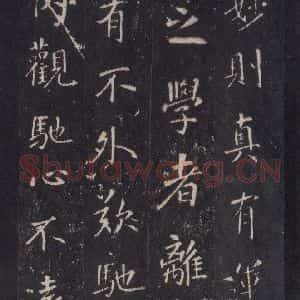 妙則真有
之學者離
有不外馳
觀馳心不遠
Shufawang.CN